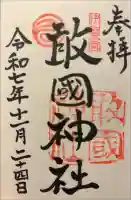 奉拝
敢國神社
令和七年十一月二十四日